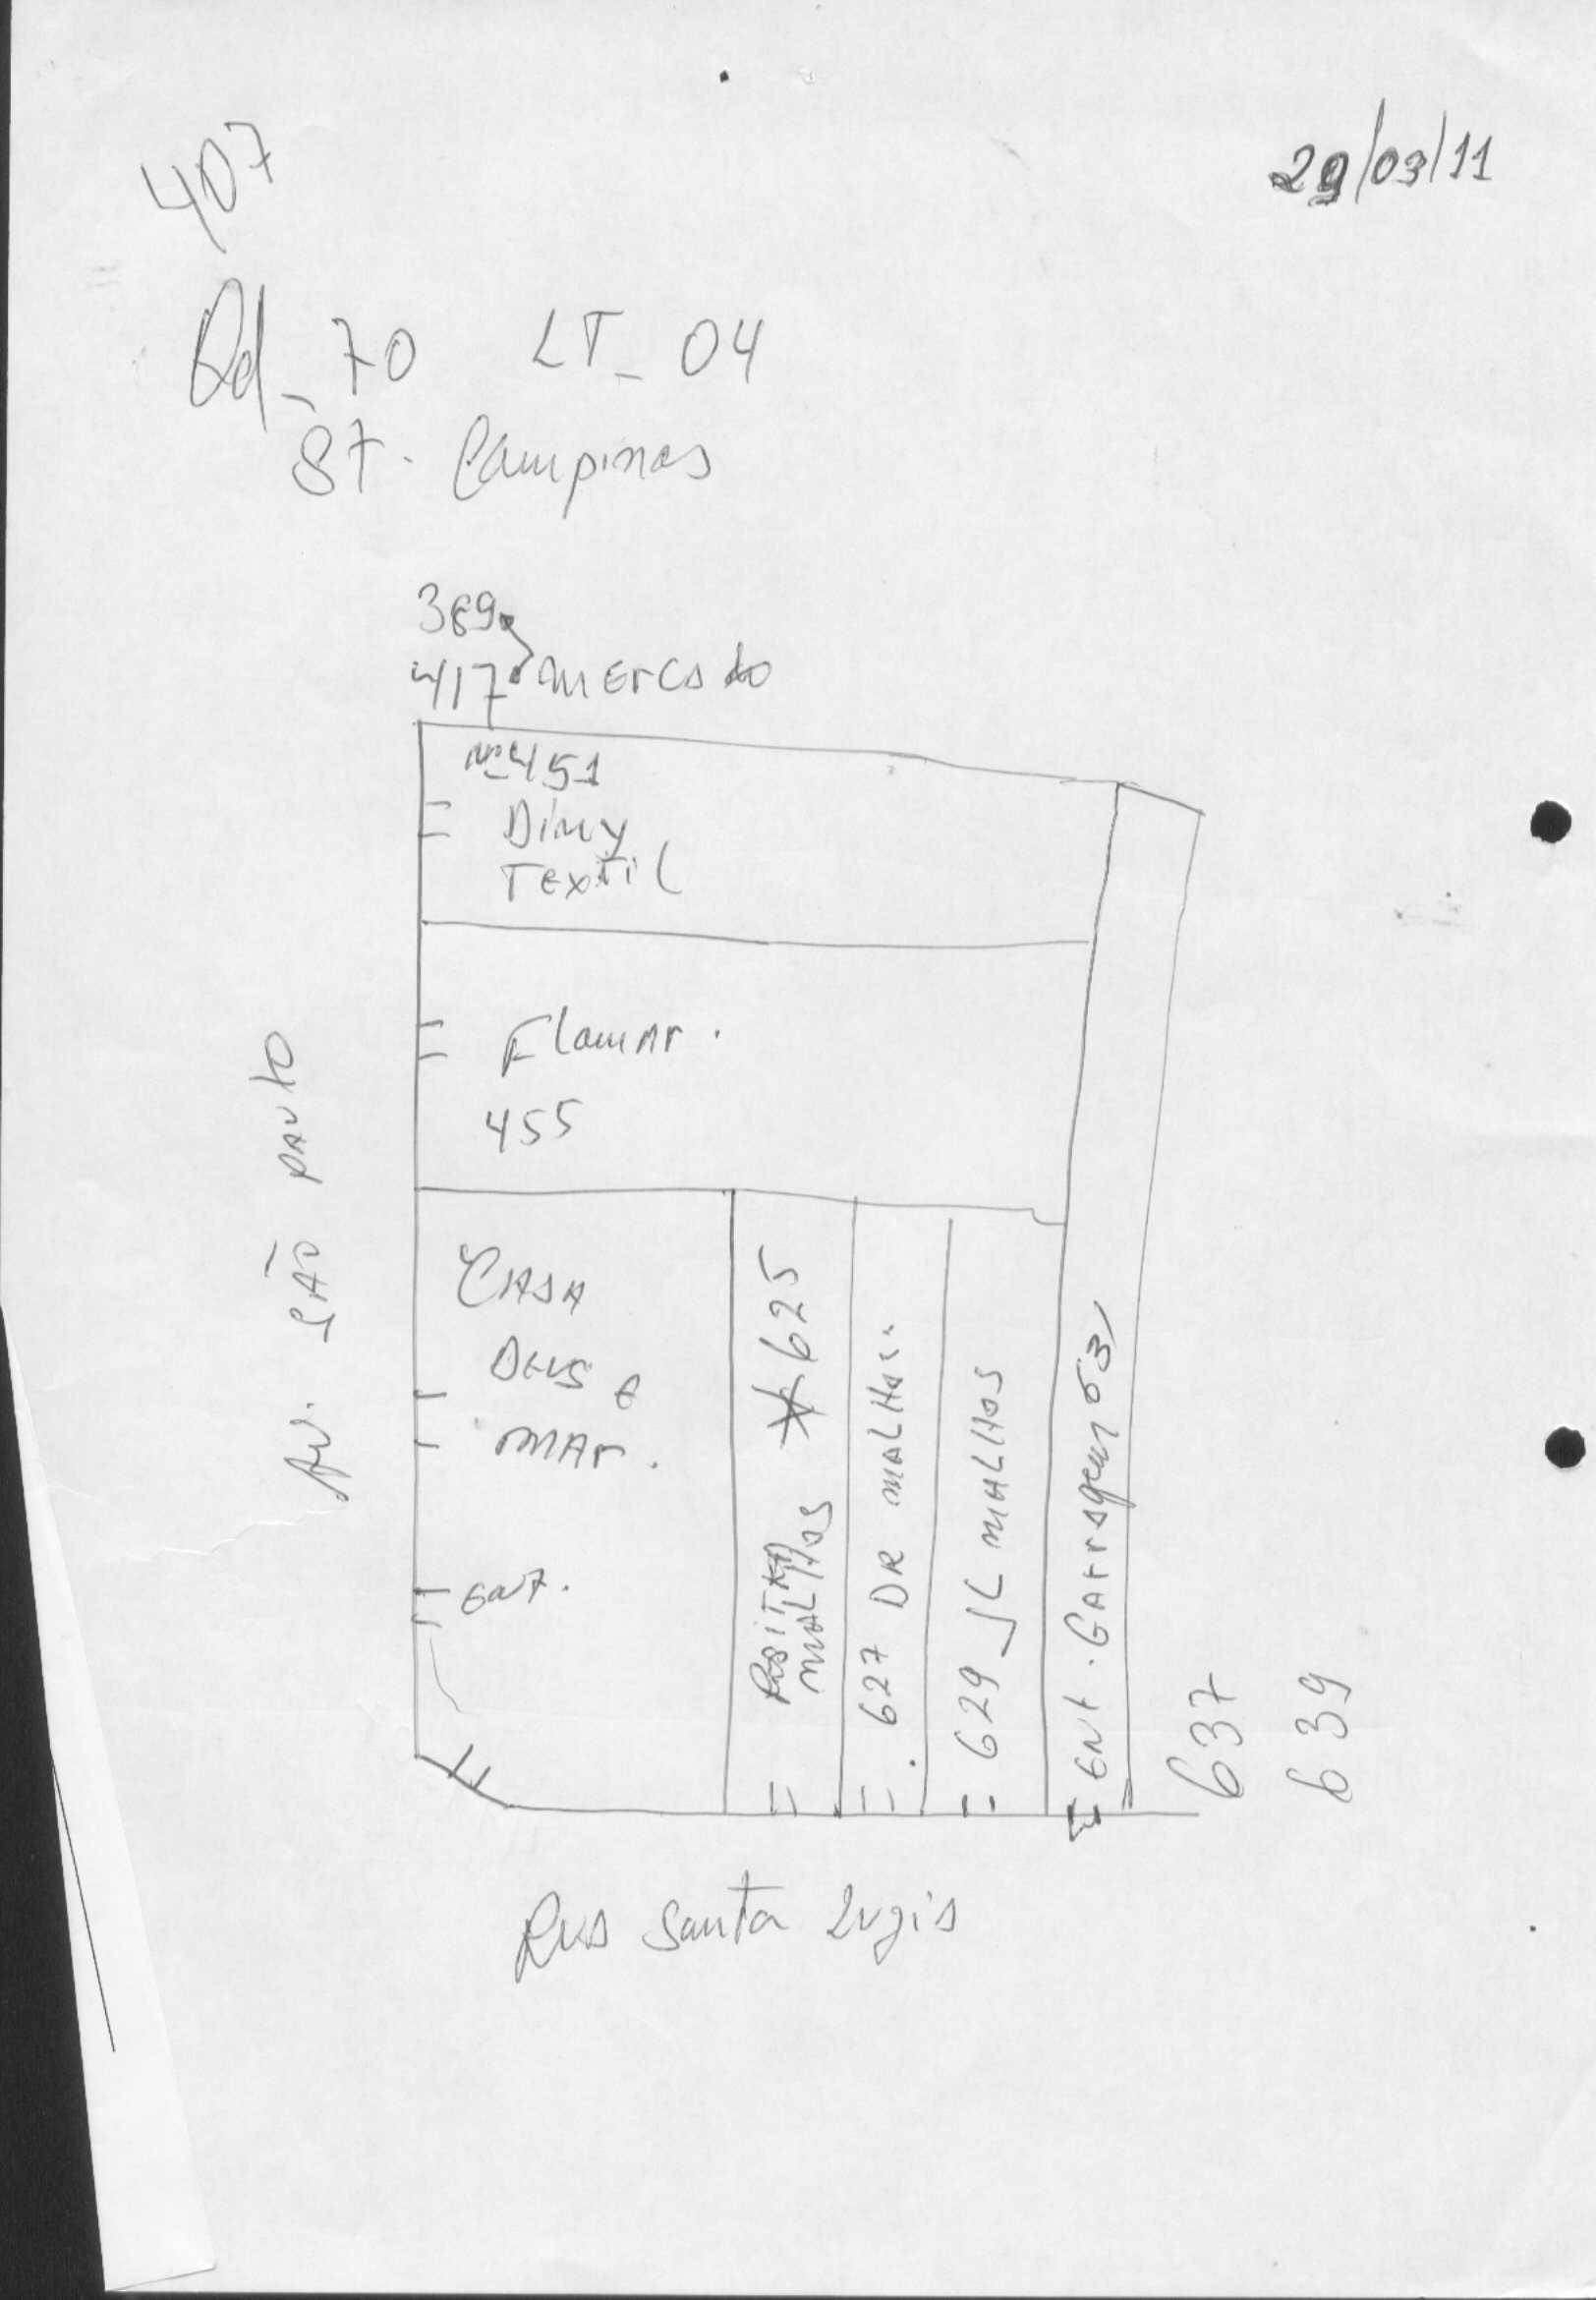 407
29/03/11
Qd_70 LT_04
ST. Campinas
389
417 mercado
Nº 451
Dimy
Textil
Flamar.
455
Av. São Paulo
Casa
Deus e
mar.
ent.
* 625
malhas
627 DR malhas
629 JL malhas
ent. Garragem 03
637
639
Rua Santa Lugia